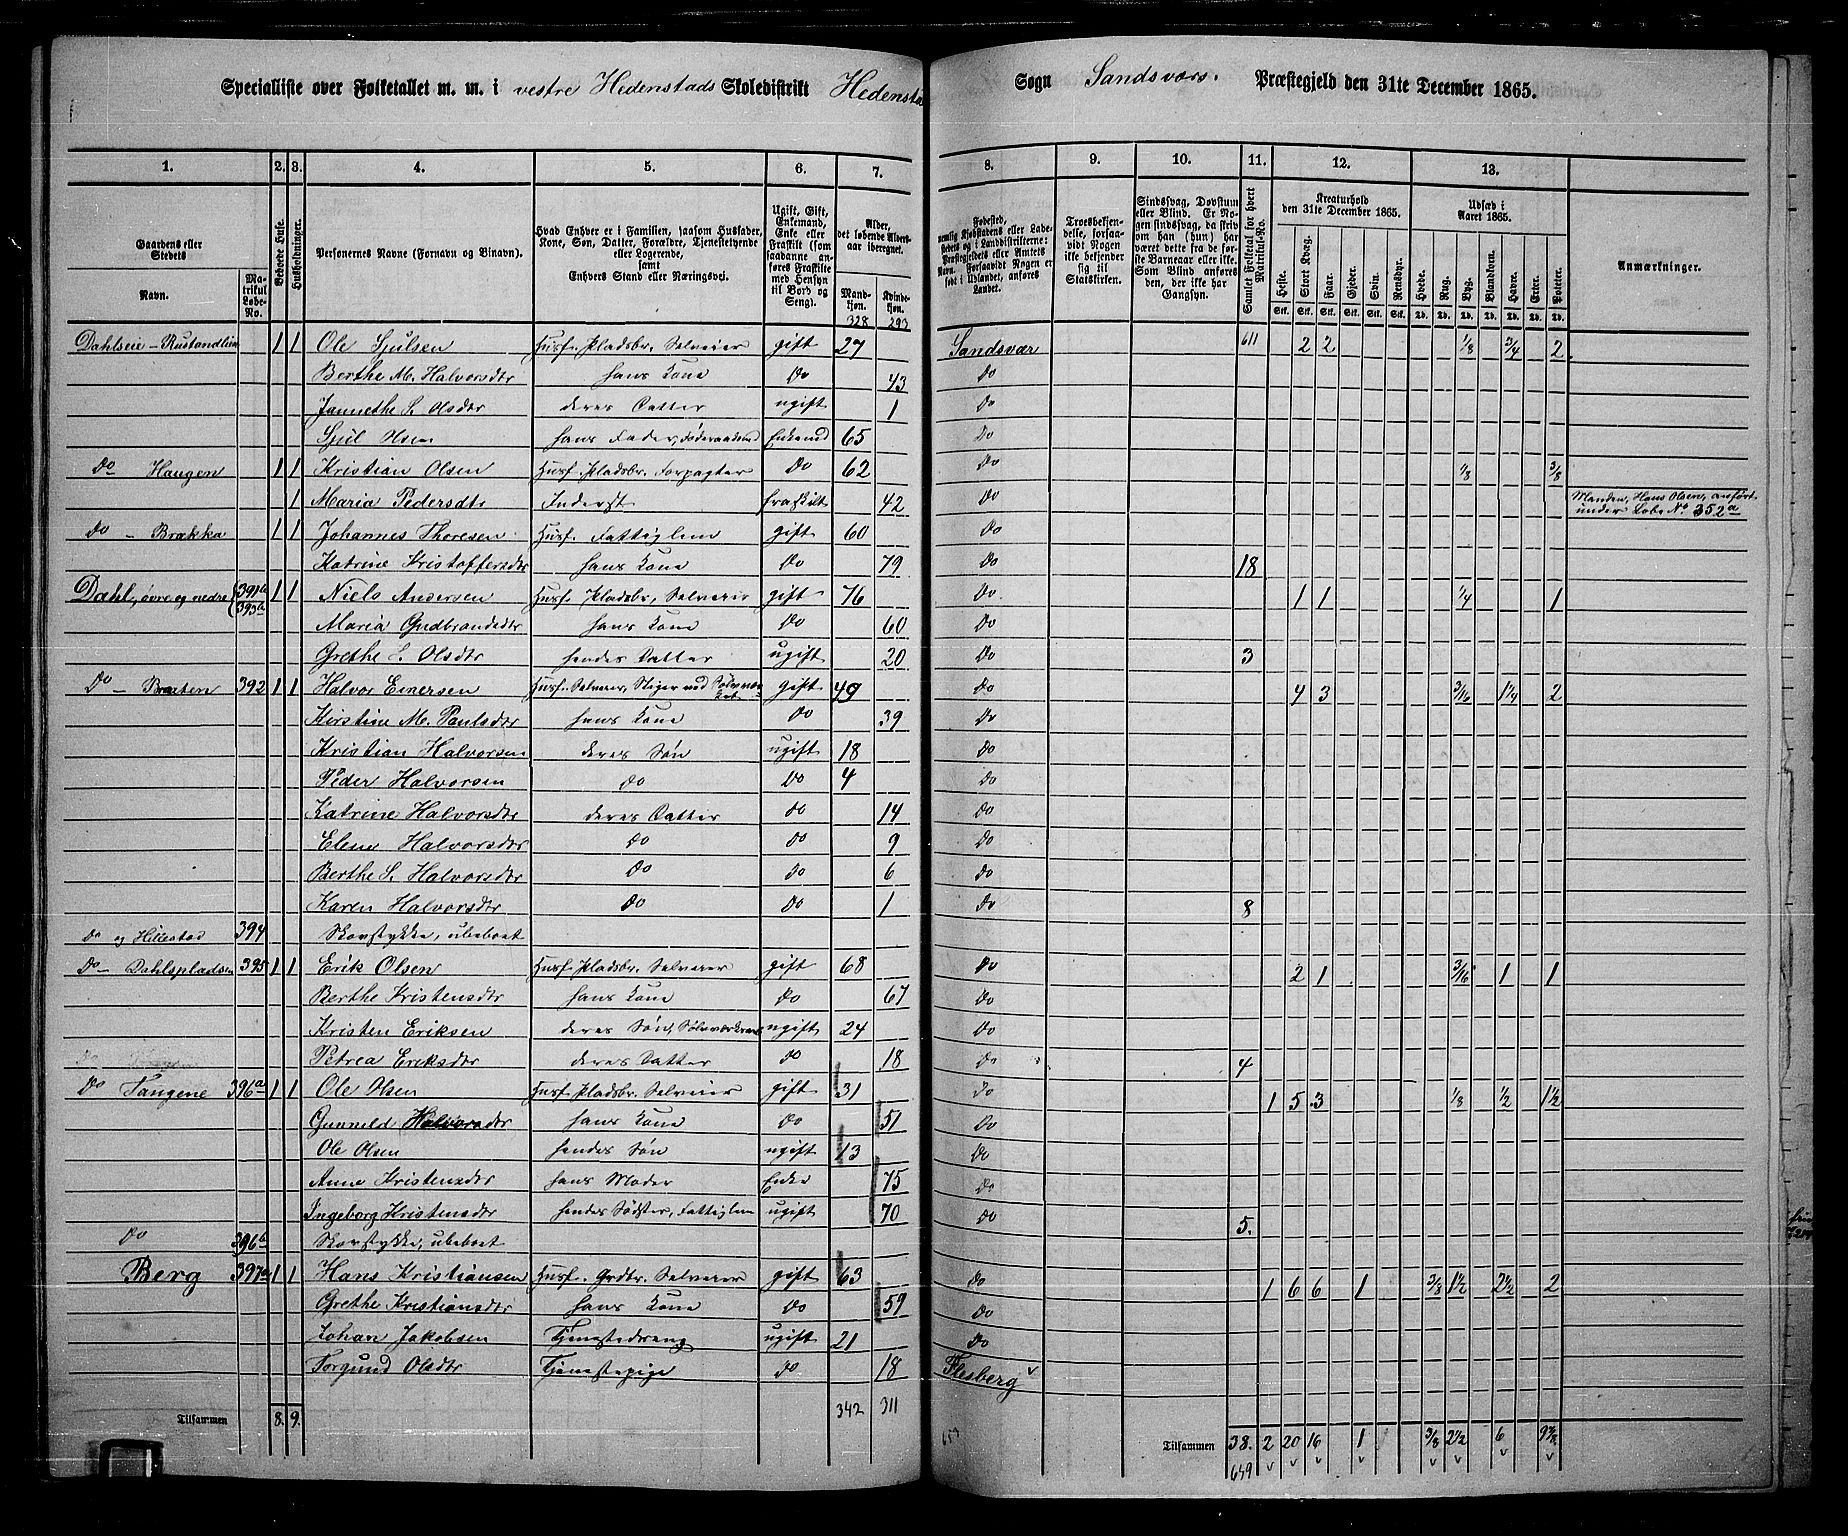 Specialliste over Folketallet m. m. i vestre Hedenstads Skoledistrikt Hedensta Sogn Sandsværs. Præstegjeld den 31te December 1865.
1. 2. 3. 4. 5. 6. 7. 8. 9. 10. 11. 12. 13.
Gaardens eller Stedets Navn. Matrikul Løbe-No. Beboede Huse. Husholdninger. Personernes Navne (Fornavn og Binavn). Hvad Enhver er i Familien, saasom Husfader, Kone, Søn, Datter, Forældre, Tjenestetyende eller Logerende, samt Enhvers Stand eller Næringsvei. Ugift, Gift, Enkemand, Enke eller Fraskilt (som saadanne anføres Fraskilte med Hensyn til Bord og Seng). Alder, det løbende Alders-aar iberegnet. Mandkjøn. Kvindekjøn.
Fødested, nemlig Kjøbstadens eller Ladestedets og i Landdistrikterne: Præstegjeldets eller Amtets Navn. Forsaavidt Nogen er født i Udlandet, anføres Landet. Troesbekjendelse, forsaavidt Nogen ikke bekjender sig til Statskirken. Sindssvag, Døvstum eller Blind. Er Nogen sindssvag, da skriv om han (hun) har været dette fra de første Barneaar eller ikke. Som Blind anføres den, der ikke har Gangsyn. Samlet Folketal for hvert Matrikul-No. Kreaturhold den 31te December 1865. Heste. Stort Kvæg. Faar. Gjeder. Svin. Rensdyr. Udsæd i Aaret 1865. Hvede. Rug. Byg. Blandkorn. Havre. Erter. Poteter. Anmærkninger.
328 293
Dahlseie - Rustandlien 1 1 Ole Sjulsen Husf. Pladsbr. Selveier gift 27 Sandsvær 611 2 2 1/8 3/4 2
Berthe M. Halvorsdtr hans Kone Do 43 Do
Jannethe S. Olsdtr deres Datter ugift 1 Do
Sjul Olsen hans Fader, Føderaadsmd Enkemd 65 Do
Do Haugen 1 1 Kristian Olsen Husf. Pladsbr. Forpagter Do 62 Do 1/8 3/8
1 Maria Pedersdtr Inderst fraskilt 42 Do Manden, Hans Olsen, anført under Løbe No 352a
Do - Brækka 1 1 Johannes Thoresen Husf. Fattiglem gift 60 Do
Katrine Kristoffersdtr hans Kone Do 79 Do 18
Dahl, øvre og nedre 391b 393b 1 1 Niels Andersen Husf. Pladsbr, Selveier gift 76 Do 1 1 1/4 1
Maria Gudbrandsdtr hans Kone Do 60 Do
Grethe E. Olsdtr hendes Datter ugift 20 Do 3
Do - Braaten 392 1 1 Halvor Einersen Husf. Selveier, Stiger ved Sølvværket gift 49 Do 4 3 3/16 1 1/4 2
Kirstine M. Paulsdtr hans Kone Do 39 Do
Kristian Halvorsen deres Søn ugift 18 Do
Peder Halvorsen Do Do 4 Do
Katrine Halvorsdtr deres Datter Do 14 Do
Elene Halvorsdtr Do Do 9 Do
Berthe S. Halvorsdtr Do Do 6 Do
Karen Halvorsdtr Do Do 1 Do 8
Do og Hillestad 394 Skovstykke, ubeboet
Do - Dahlspladsen 395 1 1 Erik Olsen Husf. Pladsbr. Selveier gift 68 Do 2 1 3/16 1 1
Berthe Kristensdtr hans Kone Do 67 Do
Kristen Eriksen deres Søn, ugift 24 Do
Petrea Eriksdtr deres Datter Do 18 Do 4
Do Tangene 396a 1 1 Ole Olsen Husf. Pladsbr. Selveier gift 31 Do 1 5 3 1/8 1/2 1 1/2
Gunneld Halvorsdtr hans Kone Do 51 Do
Ole Olsen hendes Søn ugift 13 Do
Anne Kristensdtr hans Moder Enke 75 Do
Ingeborg Kristensdtr hendes Søster, Fattiglem ugift 70 Do 5.
Do 396b Skovstykke, ubeboet
Berg 397a 1 1 Hans Kristiansen Husf. Grdbr. Selveier gift 63 Do 1 6 6 1 3/8 1 1/2 2 1/2 2
Grethe Kristiansdtr hans Kone Do 59 Do
Johan Jakobsen Tjenestedreng ugift 21 Do
Torgund Olsdtr Tjenestepige Do 18 Flesberg
Tilsammen 8. 9. 342 311 Tilsammen 38. 2 20 16 1 3/8 2 1/2 6
659